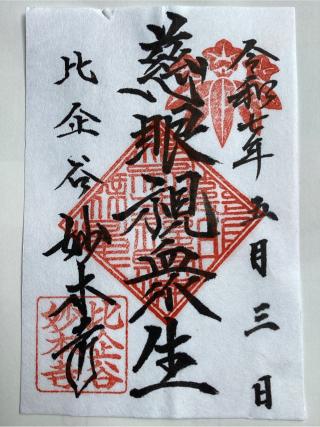 令和七年五月三日
慈眼視衆生
比企谷妙本寺
比企谷
妙本寺